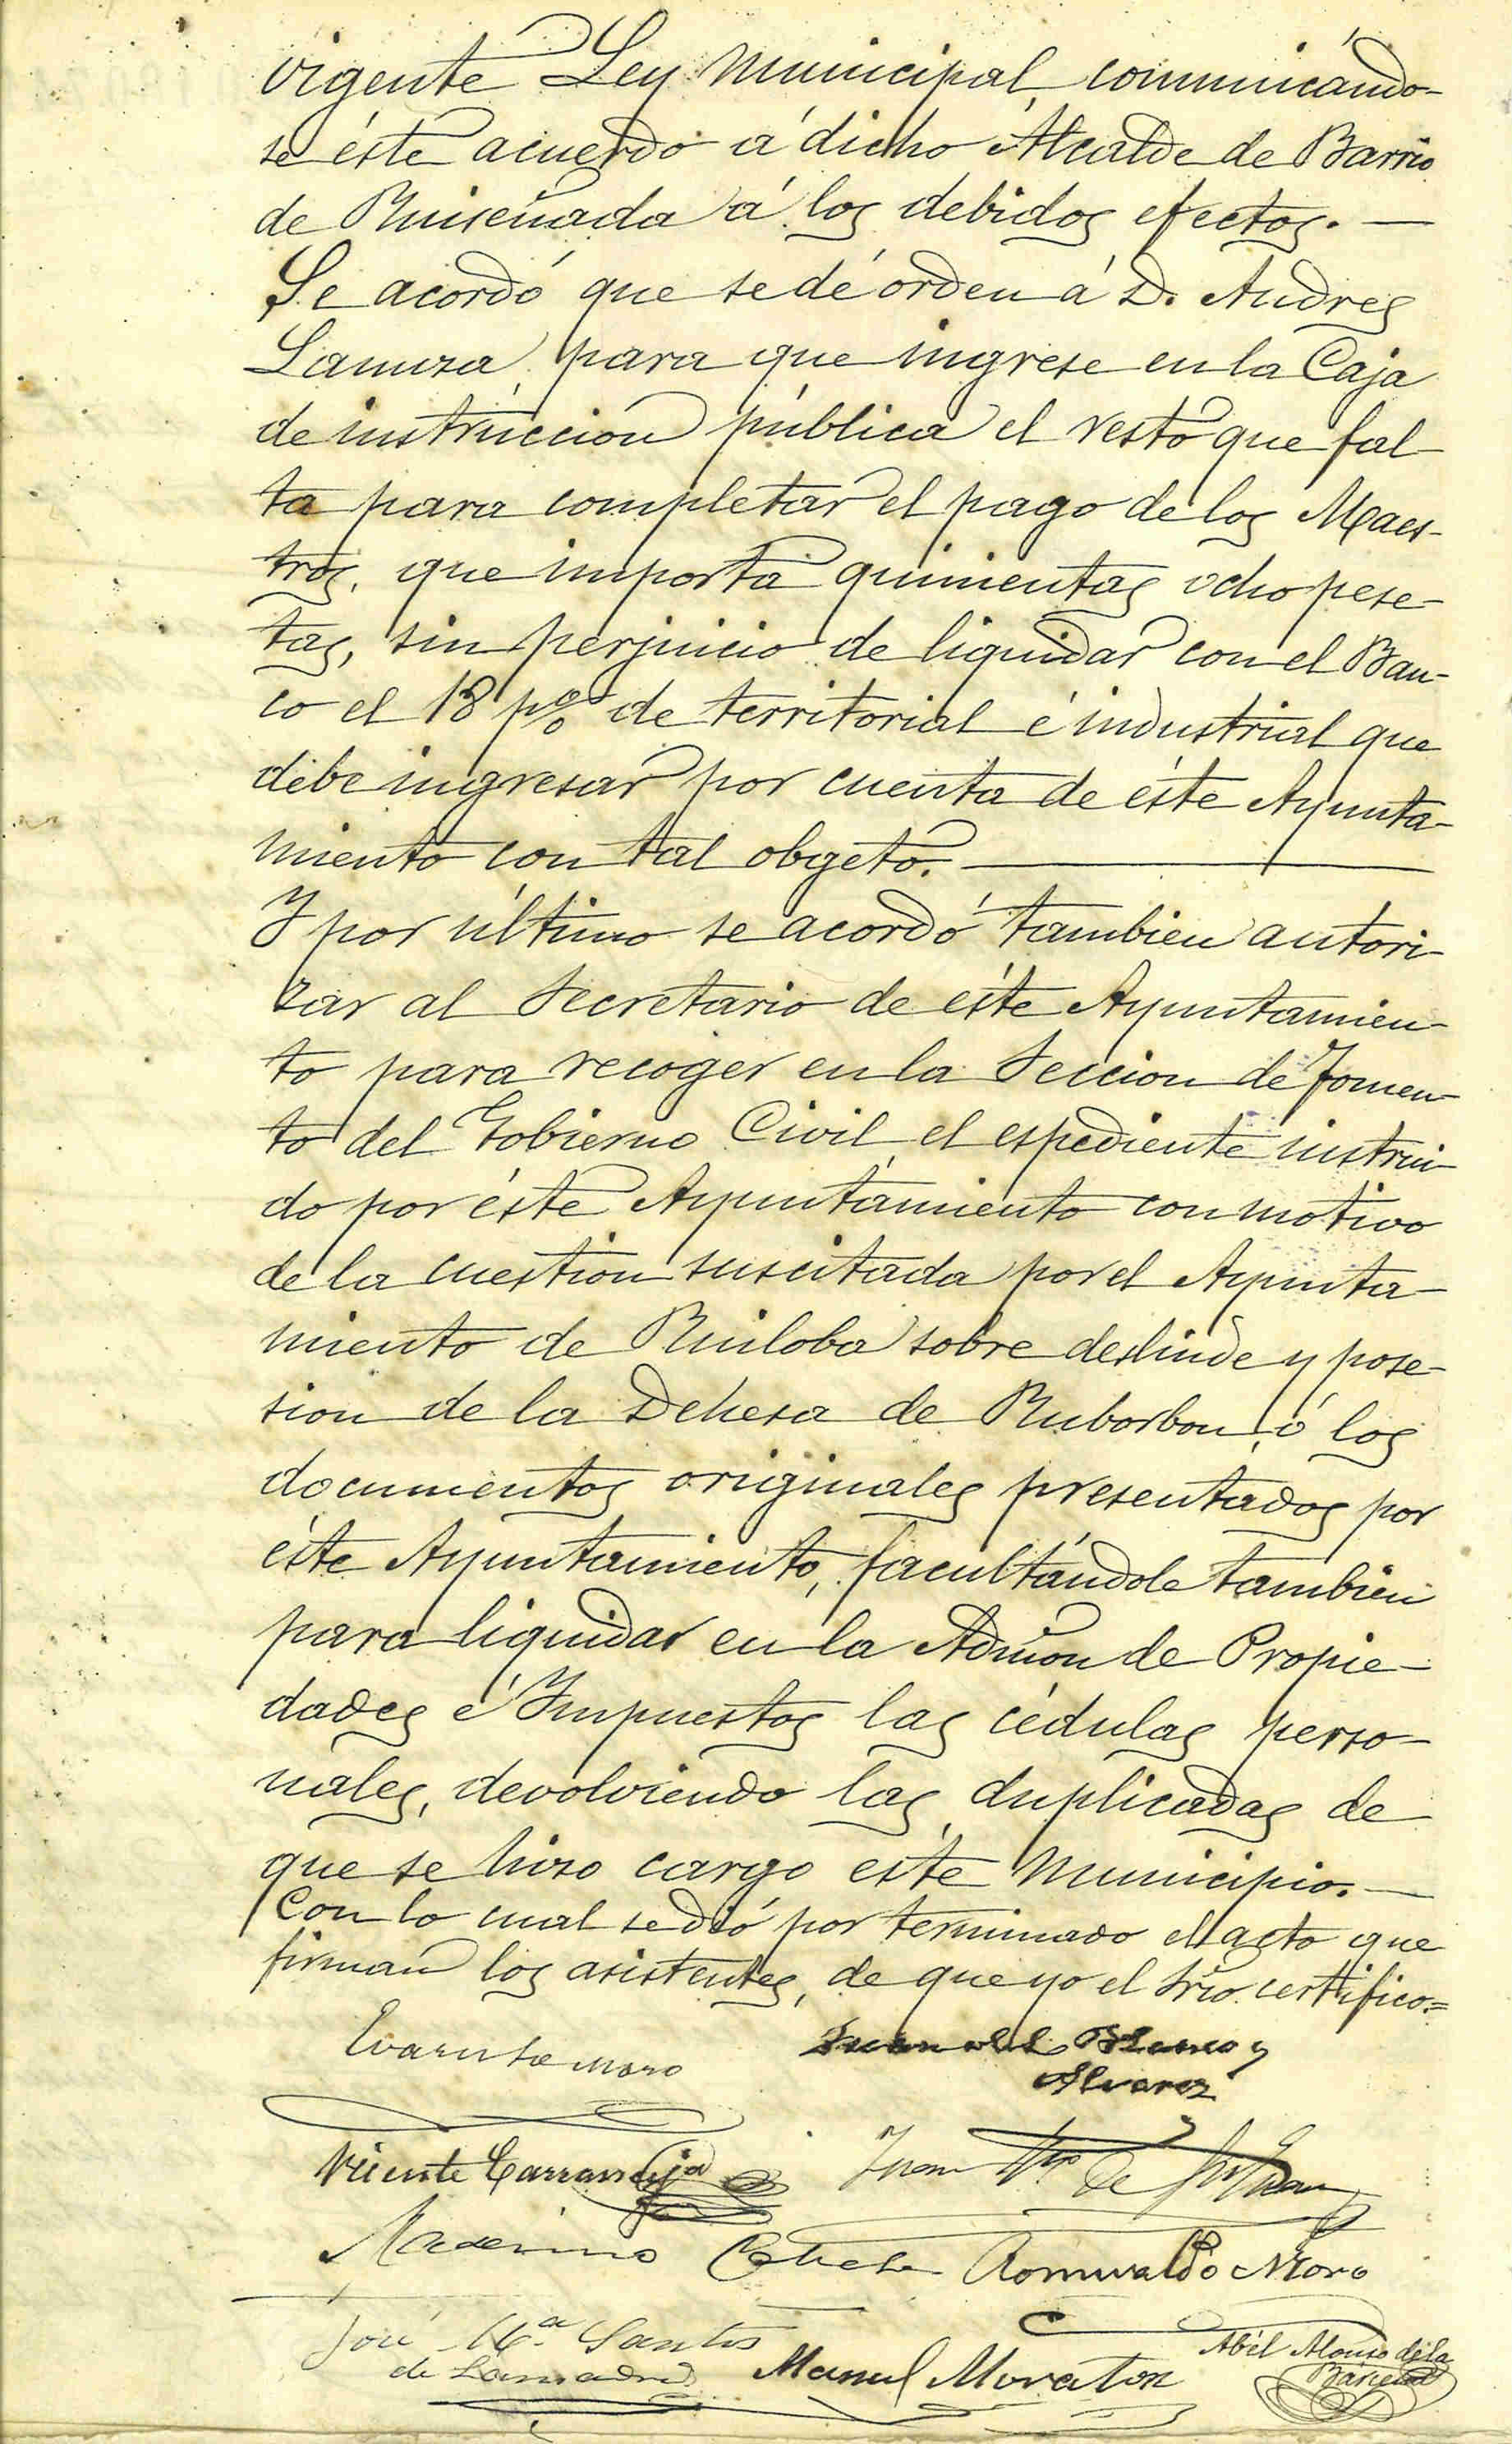 vigente Ley Municipal, comunicándo-
se éste acuerdo á dicho Alcalde de Barrio
de Ruiseñada á los debidos efectos. —
Se acordó que se dé orden á D. Andres
Lamuza, para que ingrese en la Caja
de instruccion pública el resto que fal-
ta para completar el pago de los Maes-
tros, que importa quinientas ocho pese-
tas, sin perjuicio de liquidar con el Ban-
co el 18 p% de territorial é industrial que
debe ingresar por cuenta de éste Ayunta-
miento con tal obgeto. —
Y por último se acordó tambien autori-
zar al Secretario de éste Ayuntamien-
to para recoger en la Seccion de Fomen-
to del Gobierno Civil, el espediente instrui-
do por éste Ayuntamiento con motivo
de la cuestion suscitada por el Ayunta-
miento de Ruiloba sobre deslinde y pose-
sion de la Dehesa de Ruborbon, ó los
documentos originales presentados por
éste Ayuntamiento, facultándole tambien
para liquidar en la Admon de Propie-
dades é Impuestos las cédulas perso-
nales, devolviendo las duplicadas de
que se hizo cargo este Municipio. —
Con lo cual se dió por terminado el acto que
firman los asistentes, de que yo el Srio. certifico.=
Evaristo Moro
Juan del Blanco y
Alvarez
Vicente Carrandeja
Juan de
Romualdo Moro
José Mª Santos
de Lamadrid
Manuel Moraton
Abél Alonso de la
Bárcena